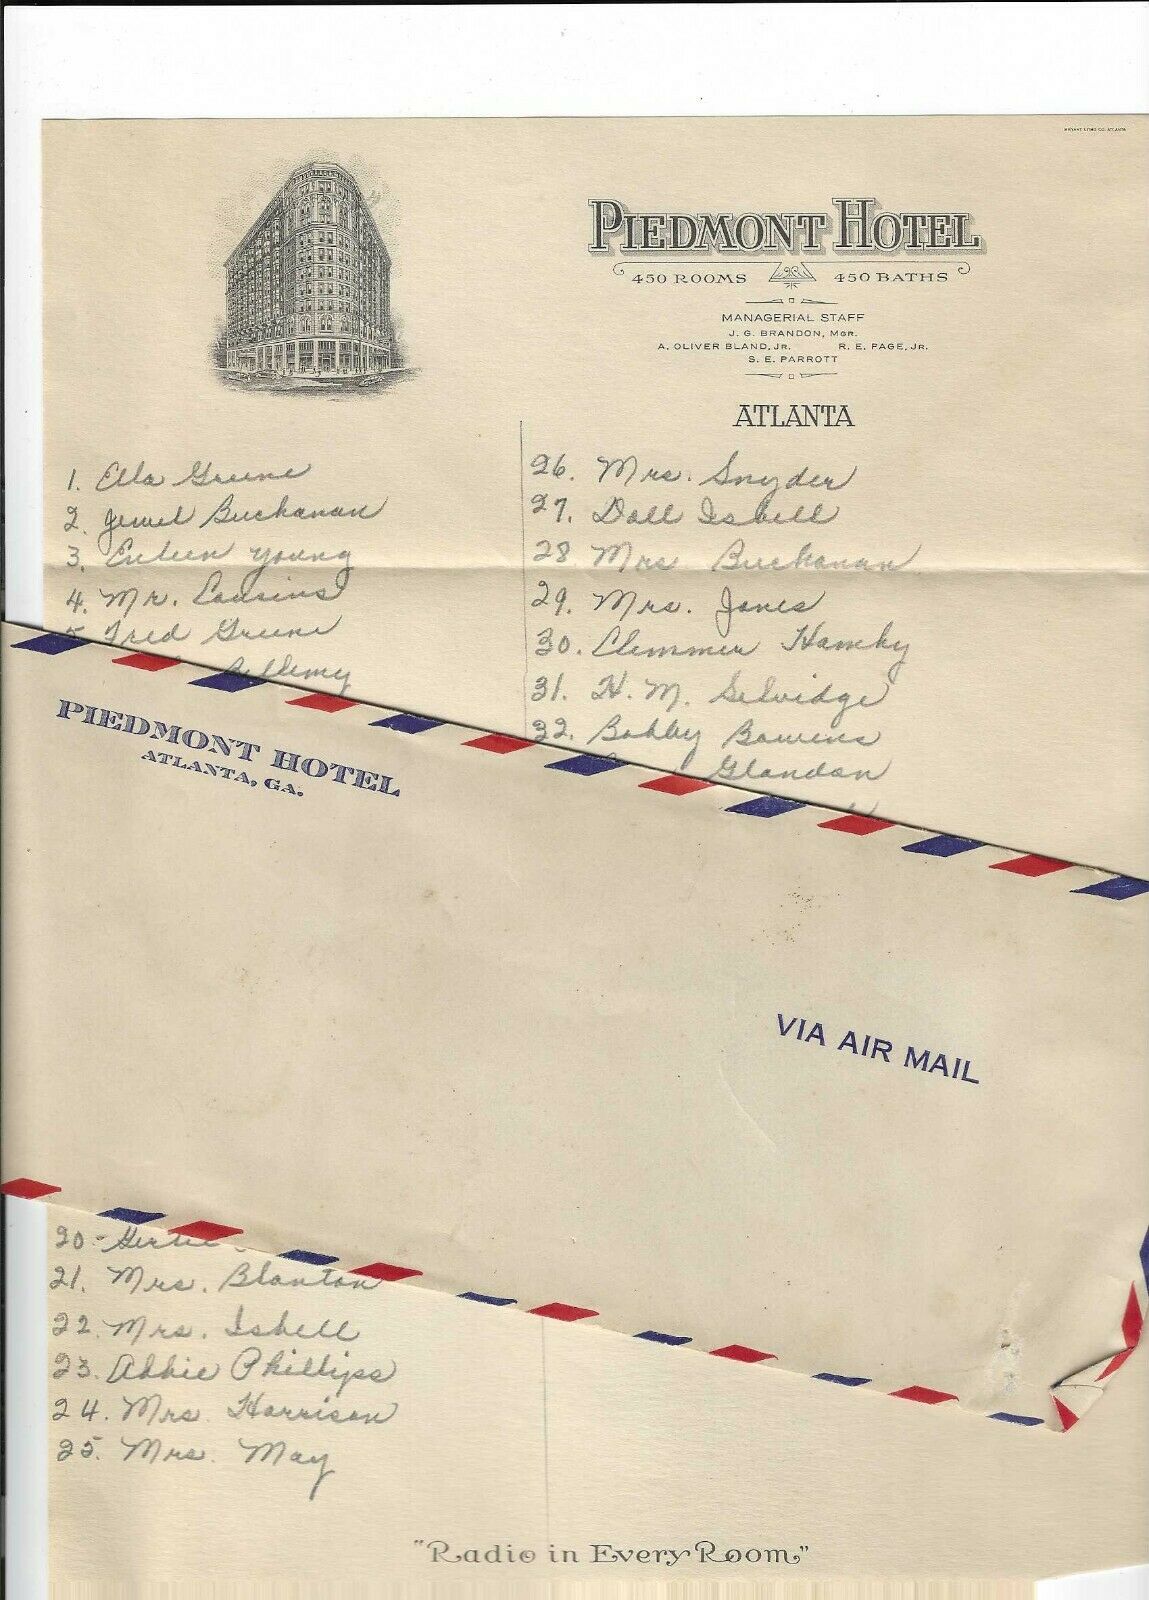 PIEDMONT HOTEL
450 ROOMS 450 BATHS
MANAGERIAL STAFF
J. G. BRANDON, MGR.
A. OLIVER BLAND, JR. R. E. PAGE, JR.
S. E. PARROTT
ATLANTA
1. Ella Greene
2. Jewel Buchanan
3. Euleen Young
4. Mr. Cousins
5. Fred Greene
20. Gertie
21. Mrs. Blanton
22. Mrs. Isbell
23. Abbie Phillips
24. Mrs. Harrison
25. Mrs. May
26. Mrs. Snyder
27. Doll Isbell
28. Mrs. Buchanan
29. Mrs. Jones
30. Clemmer Hamby
31. H. M. Selvidge
32. Bobby Bowens
Glandon
PIEDMONT HOTEL
ATLANTA, GA.
VIA AIR MAIL
"Radio in Every Room"